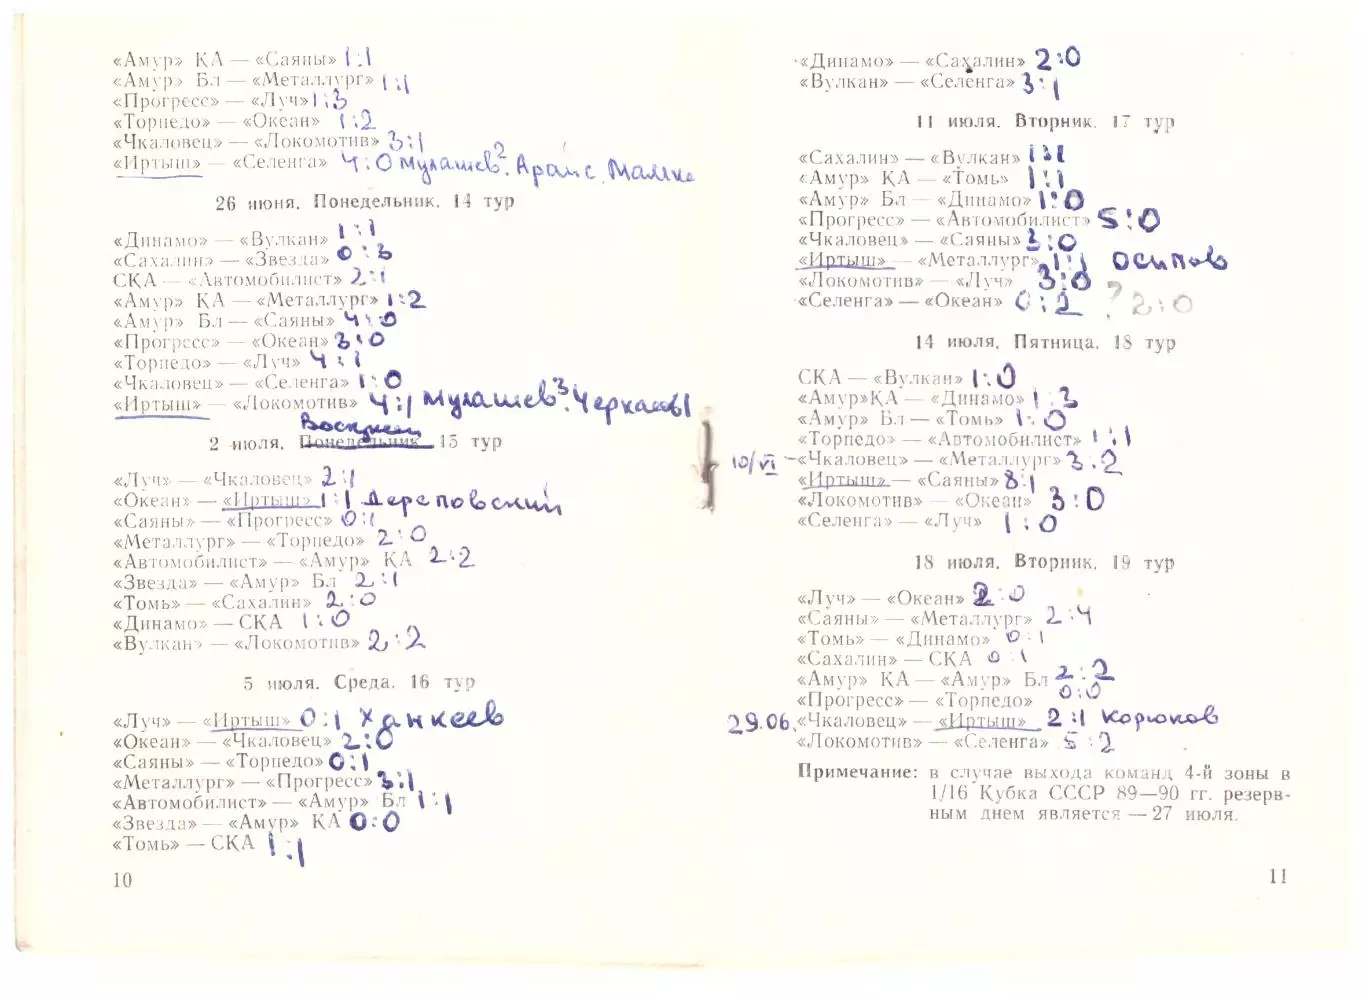 «Амур» КА — «Саяны» 1:1
«Амур» Бл — «Металлург» 1:1
«Прогресс» — «Луч» 1:3
«Торпедо» — «Океан» 1:2
«Чкаловец» — «Локомотив» 3:1
«Иртыш» — «Селенга» 4:0 Мулашев². Арайс.
26 июня. Понедельник. 14 тур
«Динамо» — «Вулкан» 1:1
«Сахалин» — «Звезда» 0:3
СКА — «Автомобилист» 2:1
«Амур» КА — «Металлург» 1:2
«Амур» Бл — «Саяны» 4:0
«Прогресс» — «Океан» 3:0
«Торпедо» — «Луч» 4:1
«Чкаловец» — «Селенга» 1:0
«Иртыш» — «Локомотив» 4:1 Мулашев³. Черкасов 1
Воскресен
2 июля. Понедельник 15 тур
«Луч» — «Чкаловец» 2:1
«Океан» — «Иртыш» 1:1 Дереповский
«Саяны» — «Прогресс» 0:1
«Металлург» — «Торпедо» 2:0
«Автомобилист» — «Амур» КА 2:2
«Звезда» — «Амур» Бл 2:1
«Томь» — «Сахалин» 2:0
«Динамо» — СКА 1:0
«Вулкан» — «Локомотив» 2:2
5 июля. Среда. 16 тур
«Луч» — «Иртыш» 0:1 Ханкеев
«Океан» — «Чкаловец» 2:0
«Саяны» — «Торпедо» 0:1
«Металлург» — «Прогресс» 3:1
«Автомобилист» — «Амур» Бл 1:1
«Звезда» — «Амур» КА 0:0
«Томь» — СКА 1:1
10
«Динамо» — «Сахалин» 2:0
«Вулкан» — «Селенга» 3:1
11 июля. Вторник. 17 тур
«Сахалин» — «Вулкан» 1:1
«Амур» КА — «Томь» 1:1
«Амур» Бл — «Динамо» 1:0
«Прогресс» — «Автомобилист» 5:0
«Чкаловец» — «Саяны» 3:0
«Иртыш» — «Металлург» 1:1 Осипов
«Локомотив» — «Луч» 3:0
«Селенга» — «Океан» 0:2 ? 2:0
14 июля. Пятница. 18 тур
СКА — «Вулкан» 1:0
«Амур»КА — «Динамо» 1:3
«Амур» Бл — «Томь» 1:0
«Торпедо» — «Автомобилист» 1:1
10/VI — «Чкаловец» — «Металлург» 3:2
«Иртыш» — «Саяны» 8:1
«Локомотив» — «Океан» 3:0
«Селенга» — «Луч» 1:0
18 июля. Вторник. 19 тур
«Луч» — «Океан» 2:0
«Саяны» — «Металлург» 2:4
«Томь» — «Динамо» 0:1
«Сахалин» — СКА 0:1
«Амур» КА — «Амур» Бл 2:2
«Прогресс» — «Торпедо» 0:0
29.06. «Чкаловец» — «Иртыш» 2:1 Корюков
«Локомотив» — «Селенга» 5:2
Примечание: в случае выхода команд 4-й зоны в
1/16 Кубка СССР 89—90 гг. резерв-
ным днем является — 27 июля.
11